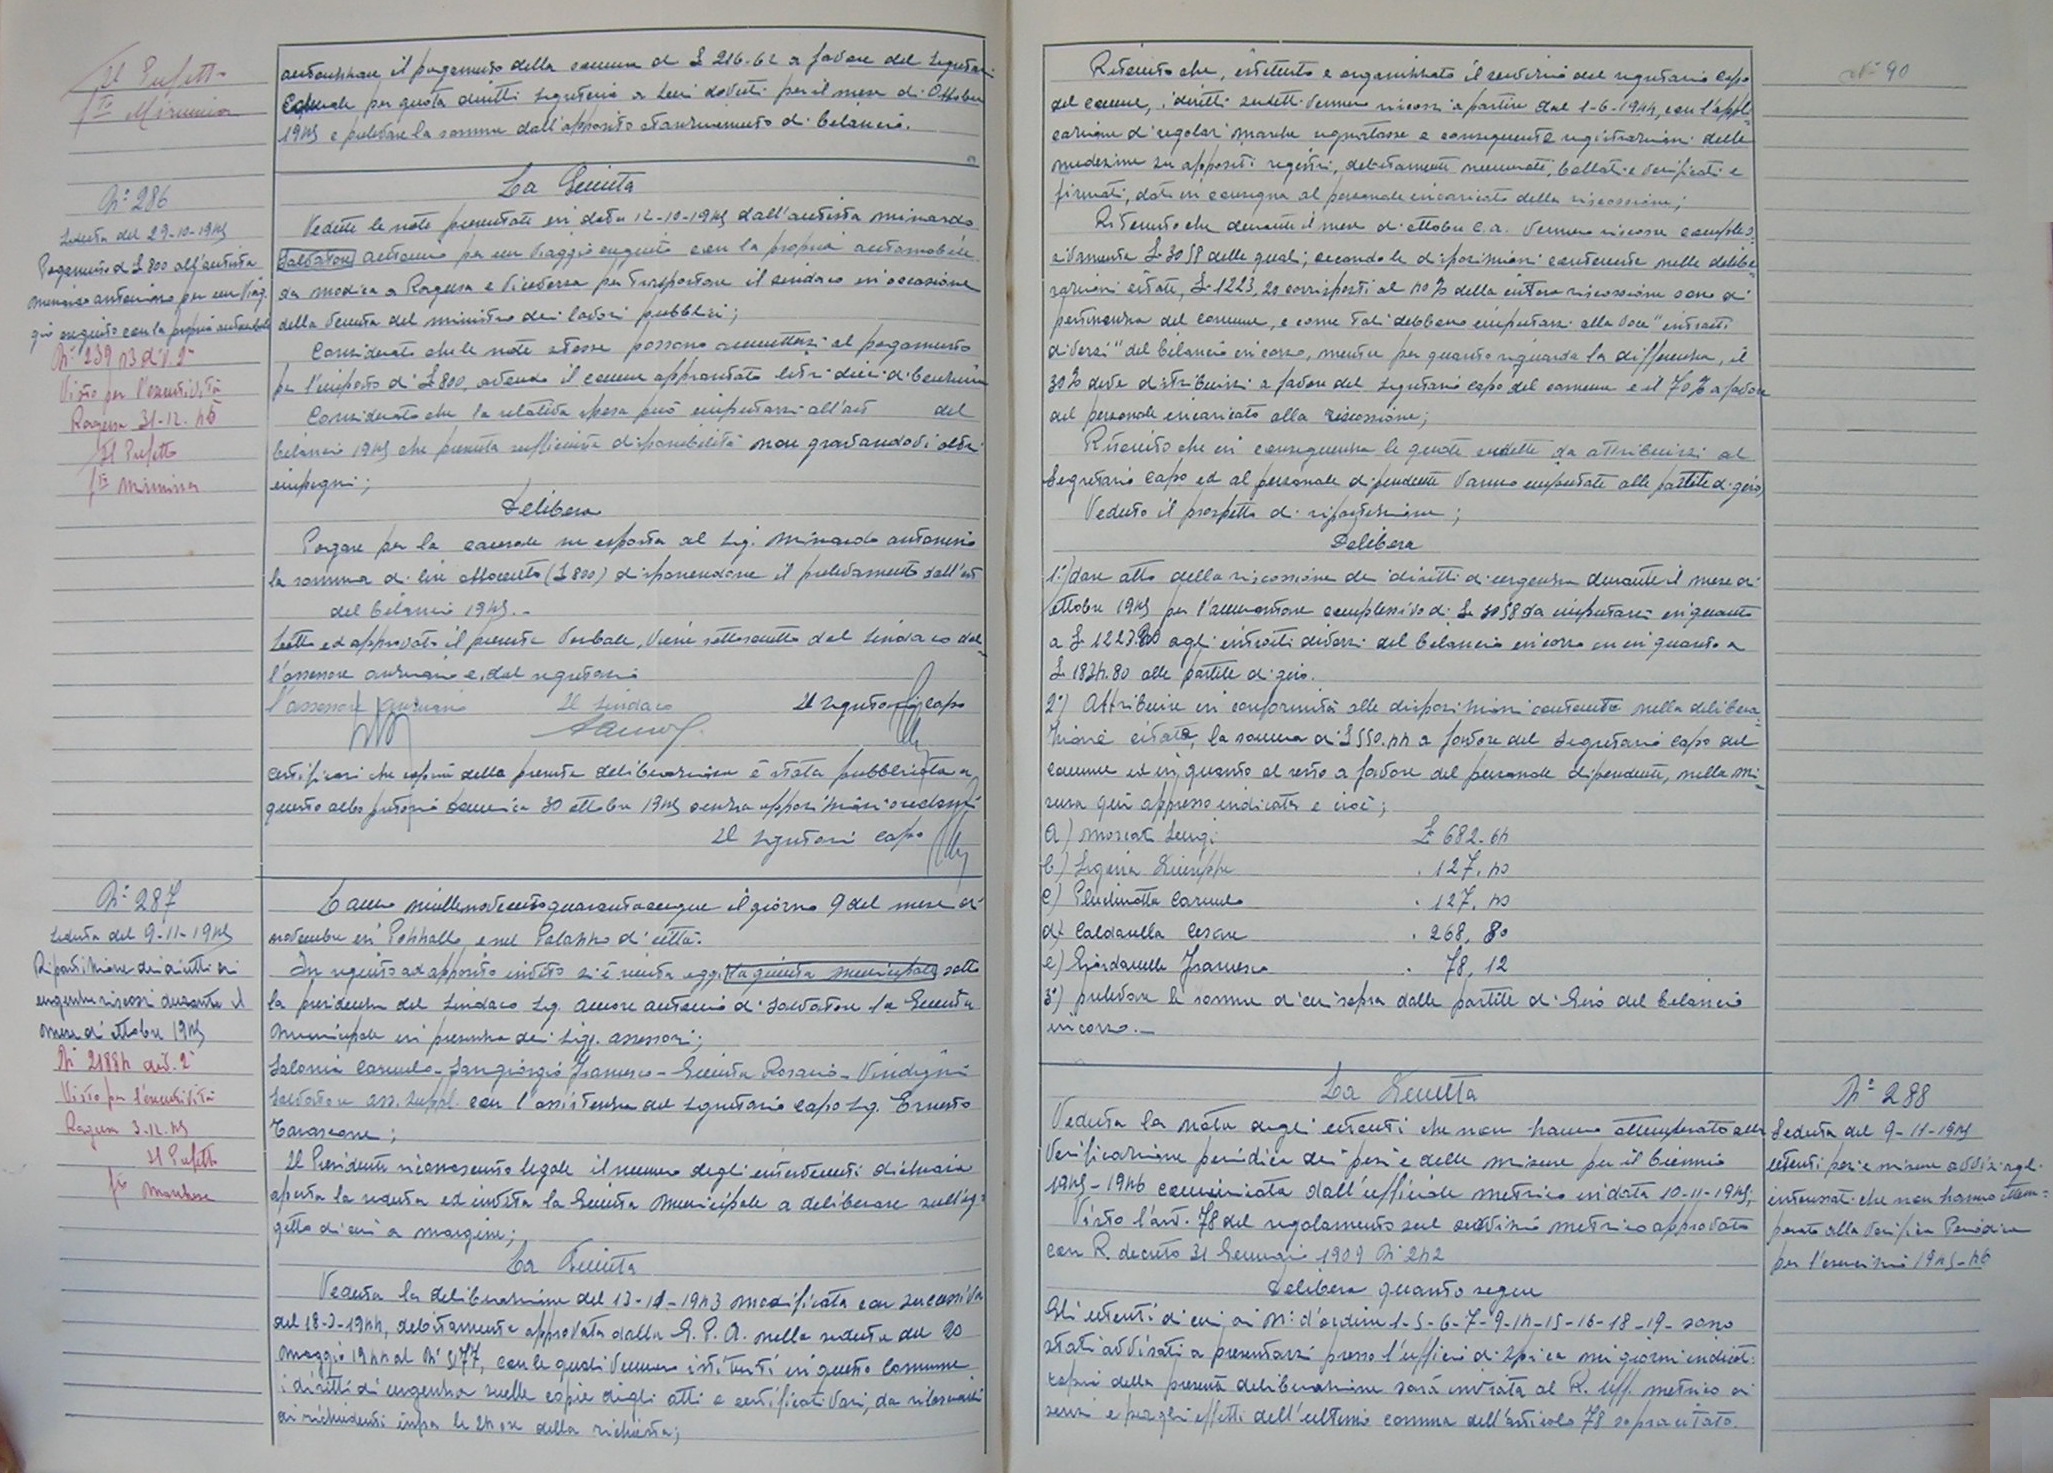 Il Prefetto
autorizzare il pagamento della somma di £ 216-62 a favore del Segretario
Comunale per quota diritti Segreteria a lui dovuti per il mese di Ottobre
1945 e prelevare la somma dall'apposito stanziamento di bilancio.
N° 286
Seduta del 29-10-1945
Pagamento di £ 800 all'autista
Minardo Antonino per un viag-
gio eseguito con la propria automobile
N° 239 13 div. 2ª
Visto per l'esecutività
Ragusa 31-12-45
Il Prefetto
La Giunta
Vedute le note presentate in data 12-10-1945 dall'autista Minardo
Salvatore Antonino per un viaggio eseguito con la propria automobile
da Modica a Ragusa e viceversa per trasportare il Sindaco in occasione
della venuta del ministro dei lavori pubblici;
Considerato che le note stesse possono ammettersi al pagamento
per l'importo di £ 800, avendo il comune apprestato litri dieci di benzina
Considerato che la relativa spesa può imputarsi all'art del
bilancio 1945 che presenta sufficiente disponibilità non gravandovi altri
impegni;
Delibera
Pagare per la causale su esposta al Sig. Minardo Antonino
la somma di lire ottocento (£ 800) disponendone il prelevamento dall'art
del bilancio 1945.-
Letto ed approvato il presente verbale, viene sottoscritto dal Sindaco dal-
l'assessore anziano e dal segretario
L'assessore anziano Il Sindaco Il Segretario capo
Certificasi che copia della presente deliberazione è stata pubblicata a
questo albo pretorio Domenica 30 ottobre 1945 senza opposizioni o reclami
Il Segretario capo
N° 287
Seduta del 9-11-1945
Ripartizione dei diritti di
urgenza riscossi durante il
mese di ottobre 1945
N° 21884 div. 2ª
Visto per l'esecutività
Ragusa 3-12-45
Il Prefetto
L'anno millenovecentoquarantacinque il giorno 9 del mese di
novembre in Pozzallo, e nel Palazzo di città.
In seguito ad apposito invito si è riunita oggi la giunta municipale sotto
la presidenza del Sindaco Sig. Amore Antonio di Salvatore la Giunta
Municipale in presenza dei Sigg. assessori;
Salonia Carmelo - Sangiorgio Francesco - Giunta Rosario - Vindigni
Salvatore ass. suppl. con l'assistenza del Segretario capo Sig. Ernesto
Tarascone;
Il Presidente riconosciuto legale il numero degli intervenuti dichiara
aperta la seduta ed invita la Giunta Municipale a deliberare sull'og-
getto di cui a margine;
La Giunta
Veduta la deliberazione del 13-11-1943 modificata con successiva
del 18-3-1944, debitamente approvata dalla G. P. A. nella seduta del 20
maggio 1944 al N° 5177, con le quali vennero istituiti in questo comune
i diritti di urgenza sulle copie degli atti e certificati vari, da rilasciarsi
ai richiedenti infra le 24 ore della richiesta;
N° 90
Ritenuto che, istituito e organizzato il servizio dal segretario capo
del comune, i diritti suddetti vennero riscossi a partire dal 1-6-1944, con l'appli-
cazione di regolari marche segnatasse e conseguente registrazione delle
medesime su appositi registri, debitamente numerati, bollati e verificati e
firmati, dati in consegna al personale incaricato della riscossione;
Ritenuto che durante il mese di ottobre c.a. vennero riscosse comples-
sivamente £ 3058 delle quali, secondo le disposizioni contenute nelle delibe-
razioni citate, £ 1223,20 corrisposti al 40% della intera riscossione sono di
pertinenza del comune, e come tali debbono imputarsi alla voce "introiti
diversi" del bilancio in corso, mentre per quanto riguarda la differenza, il
30% deve distribuirsi a favore del Segretario capo del comune e il 70% a favore
del personale incaricato alla riscossione;
Ritenuto che in conseguenza le quote suddette da attribuirsi al
Segretario capo ed al personale dipendente vanno imputate alle partite di giro
Veduto il prospetto di ripartizione;
Delibera
1°) dare atto della riscossione dei diritti di urgenza durante il mese di
ottobre 1945 per l'ammontare complessivo di £ 3058 da imputarsi in quanto
a £ 1223.20 agli introiti diversi del bilancio in corso in quanto a
£ 1834.80 alle partite di giro.
2°) Attribuire in conformità alle disposizioni contenute nella delibera-
zione citata, la somma di £ 550.44 a favore del Segretario capo del
comune ed in quanto al resto a favore del personale dipendente, nella mi-
sura qui appresso indicata e cioè;
a) Moscato Luigi £ 682.64
b) Giuseppe . 127.40
c) Pluchinotta Carmelo . 127.40
d) Caldarella Cesare . 268,80
e) Giardanella Francesco . 78,12
3°) prelevare le somme di cui sopra dalle partite di giro del bilancio
in corso.-
La Giunta
Veduta la nota degli utenti che non hanno ottemperato alla
verificazione periodica dei pesi e delle misure per il biennio
1945-1946 comunicata dall'ufficiale metrico in data 10-11-1945;
Visto l'art. 78 del regolamento sul servizio metrico approvato
con R. decreto 31 Gennaio 1909 N° 242
Delibera quanto segue
Gli utenti di cui ai N: d'ordine 1-5-6-7-9-14-15-16-18-19- sono
stati avvisati a presentarsi presso l'ufficio di Spica nei giorni indicati.
copia della presente deliberazione sarà inviata al R. uff. metrico ai
sensi e per gli effetti dell'ultimo comma dell'articolo 78 sopracitato.
N° 288
Seduta del 9-11-1945
utenti pesi e misure avvisi agli
interessati che non hanno ottem-
perato alla verifica Periodica
per l'esercizio 1945-46